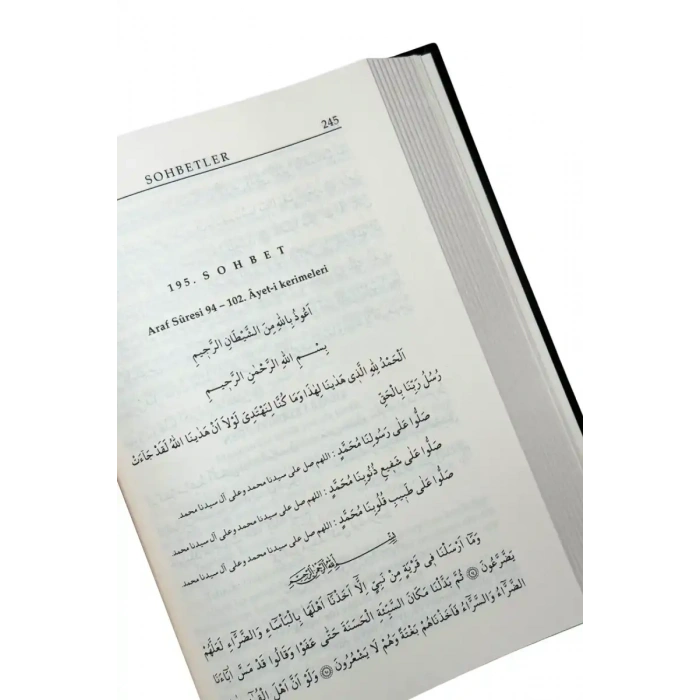 245
SOHBETLER
195. SOHBET
Araf Sûresi 94 – 102. Âyet-i kerimeleri
اَعُوذُ بِاللهِ مِنَ الشَّيْطَانِ الرَّجِيمِ
بِسْمِ اللهِ الرَّحْمٰنِ الرَّحِيمِ
اَلْحَمْدُ لِلّٰهِ الَّذِى هَدٰينَا لِهٰذَا وَمَا كُنَّا لِنَهْتَدِىَ لَوْلَا اَنْ هَدٰينَا اللهُ لَقَدْ جَاءَتْ
رُسُلُ رَبِّنَا بِالْحَقِّ
صَلُّوا عَلَى رَسُولِنَا مُحَمَّدٍ : اللهم صل على سيدنا محمد وعلى آل سيدنا محمد.
صَلُّوا عَلَى شَفِيعِ ذُنُوبِنَا مُحَمَّدٍ : اللهم صل على سيدنا محمد وعلى آل سيدنا محمد.
صَلُّوا عَلَى طَبِيبِ قُلُوبِنَا مُحَمَّدٍ : اللهم صل على سيدنا محمد وعلى آل سيدنا محمد.
بِسْمِ اللهِ الرَّحْمٰنِ الرَّحِيمِ
وَمَا اَرْسَلْنَا فِى قَرْيَةٍ مِنْ نَبِىٍّ اِلَّا اَخَذْنَا اَهْلَهَا بِالْبَأْسَاءِ وَالضَّرَّاءِ لَعَلَّهُمْ
يَضَّرَّعُونَ ﴿٩٤﴾ ثُمَّ بَدَّلْنَا مَكَانَ السَّيِّئَةِ الْحَسَنَةَ حَتَّى عَفَوْا وَقَالُوا قَدْ مَسَّ اٰبَاءَنَا
الضَّرَّاءُ وَالسَّرَّاءُ فَاَخَذْنَاهُمْ بَغْتَةً وَهُمْ لَا يَشْعُرُونَ ﴿٩٥﴾ وَلَوْ اَنَّ اَهْلَ الْقُرٰٓى